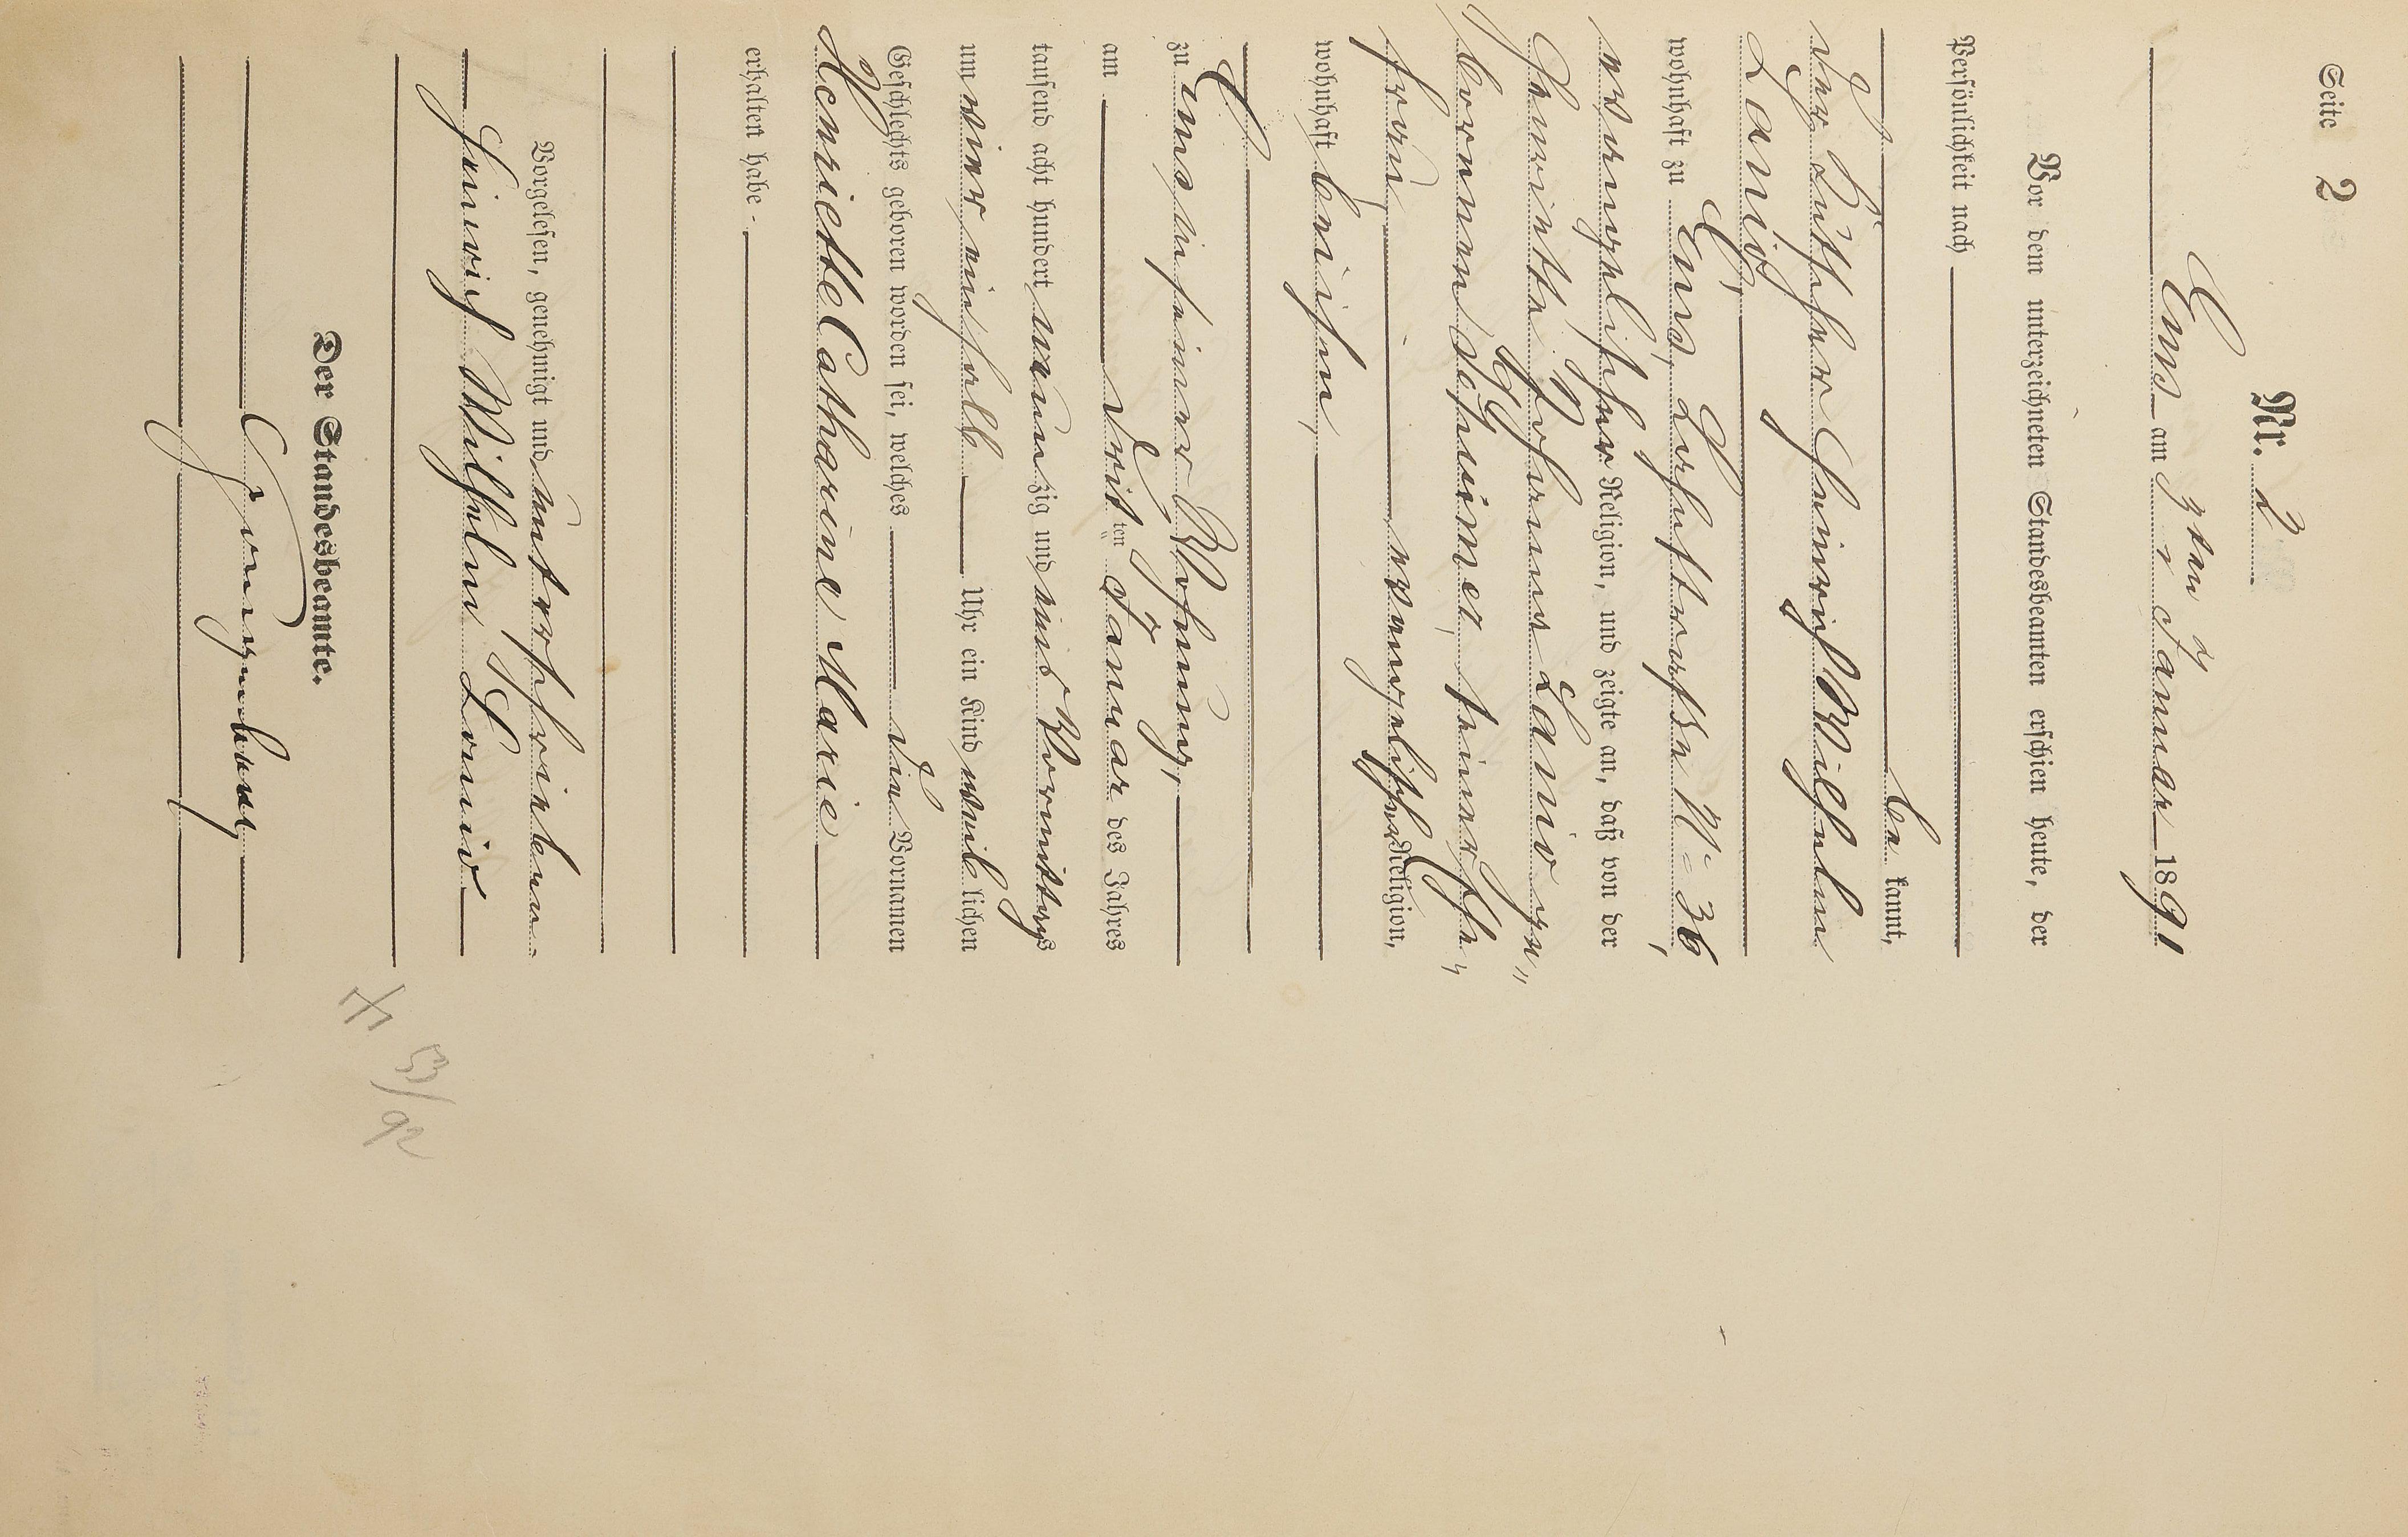 Seite 2
Nr. 2
Ems am 3ten Januar 1891
Vor dem unterzeichneten Standesbeamten erschien heute, der
Persönlichkeit nach
be kannt,
der Küfer Heinrich Wilhelm
Lanio,
wohnhaft zu Ems, Lahnstraße No 36,
evangelischer Religion, und zeigte an, daß von der
Henriette Johanna Lanio ge„
bornen Schuimer, seiner Ehe„
frau, evangelischer Religion,
wohnhaft bei ihm,
zu Ems in seiner Wohnung,
am dritten Januar des Jahres
tausend acht hundert neunzig und eins Vormittags
um vier einhalb Uhr ein Kind weiblichen
Geschlechts geboren worden sei, welches die Vornamen
Henriette Catharine Marie
erhalten habe.
Vorgelesen, genehmigt und unterschrieben.
Heinrich Wilhelm Lanio
Der Standesbeamte.
53/92